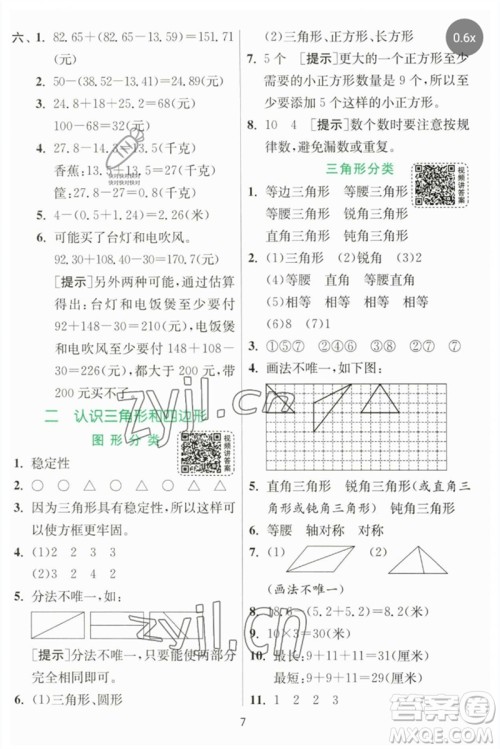 六、1. 82.65+(82.65-13.59)=151.71(元)
2. 50-(84-51)=17(元)
3. 24.8+18+25.2=68(元)
100-68=32(元)
4. 27.8-14.3=13.5(千克)
香蕉:14.3-13.5=0.8(千克)
筐:27.8-27=0.8(千克)
5. 4-(0.51+1.24)=2.25(米)
6. 可能买了台灯和电吹风。
92.30+108.4-30=170.7(元)
[提示]另外两种可能,通过估算
得出:买台灯和电饭煲至少要付
92+148-30=210(元),买电饭煲
和电吹风至少要付148+108-
30=226(元)。奶奶的钱包里有
200元,买不了。
二 认识三角形和四边形
图形分类
视频讲答案
1. 稳定性
2. ○ ○ △ ○ △ △ ○ △
3. 因为三角形具有稳定性,所以这
样可以使方框更牢固。
4. (1)2 3 1
(2)3 2 4 2
5. 分法不唯一,如:
[提示]分法不唯一,只要分的两部分
完全相同即可。
6. (1)三角形、圆形
(2)三角形、正方形、长方形
7. 5个 [提示]更大的一个正方形至少
需要的小正方形数量是9个,所以
至少还需要5个小正方形。
8. 10 4 [提示]数个数时要注意按规
律数,避免漏数或重复。
三角形分类
视频讲答案
1. 等边三角形 等腰三角形
等腰三角形 锐角三角形
直角三角形 钝角三角形
2. (1)三角形 (2)锐角 (3)2
(4)等腰 直角 等腰直角
(5)相等 相等 相等
(6)8 (7)1
3. ①⑤⑦ ②③④⑥ ②③ ⑦
4. 画法不唯一,如下图:
5. 直角三角形 锐角三角形(或直角三
角形或钝角三角形) 钝角三角形
6. 等腰 轴对称 对称
7. (1) (2)
(画法不唯一)
8. 18.6-(5.2+5.2)=8.2(米)
9. 10×3=30(米)
10. 最长:9+11+11=31(厘米)
最短:9+9+11=29(厘米)
11. 1 2 2 3
7
0.6x
zyjl.cn
zyjl.cn
答案圈
MXQE.COM